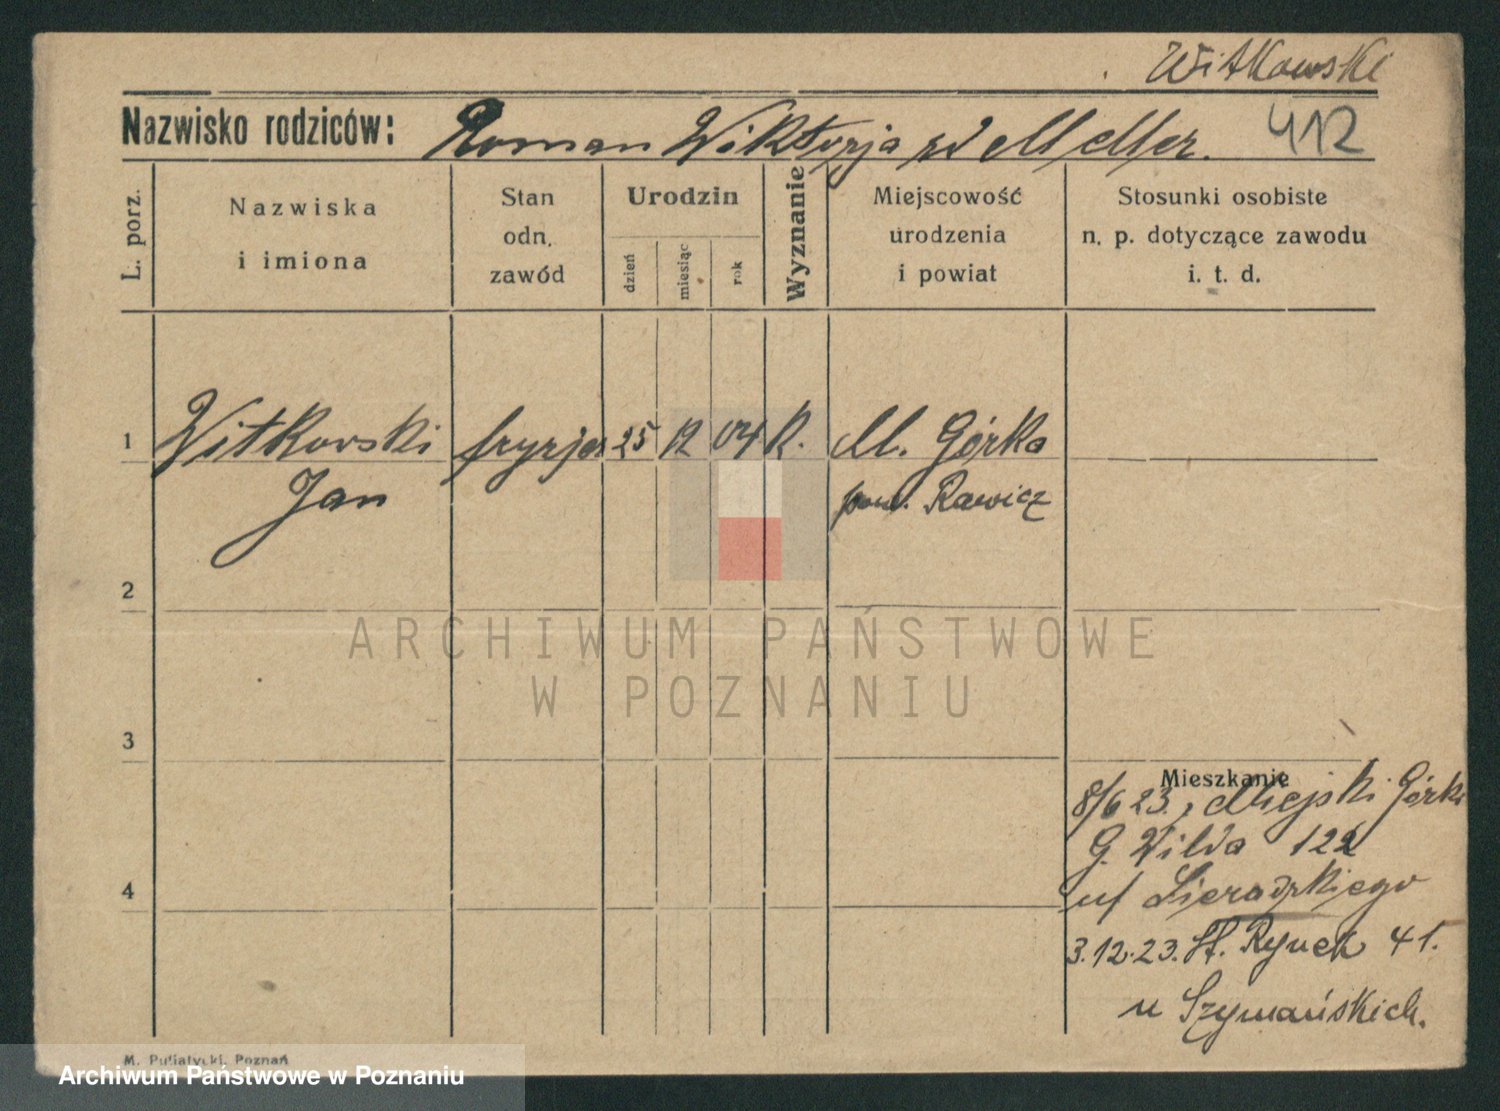 Witkowski
Nazwisko rodziców: Roman Wiktorja zd Meller. 412
L. porz.
Nazwiska
i imiona
Stan
odn.
zawód
Urodzin
dzień
miesiąc
rok
Wyznanie
Miejscowość
urodzenia
i powiat
Stosunki osobiste
n. p. dotyczące zawodu
i. t. d.
1 Witkowski fryzjer 25 12 04 k. M. Górka
Jan pow. Rawicz
2
ARCHIWUM PAŃSTWOWE
W POZNANIU
3
Mieszkanie
8/6 23., Miejski Górki
G. Wilda 122
u/ Sieradzkiego
4
3.12.23. St. Rynek 41.
u Szymańskich.
M. Putiatycki, Poznań
Archiwum Państwowe w Poznaniu